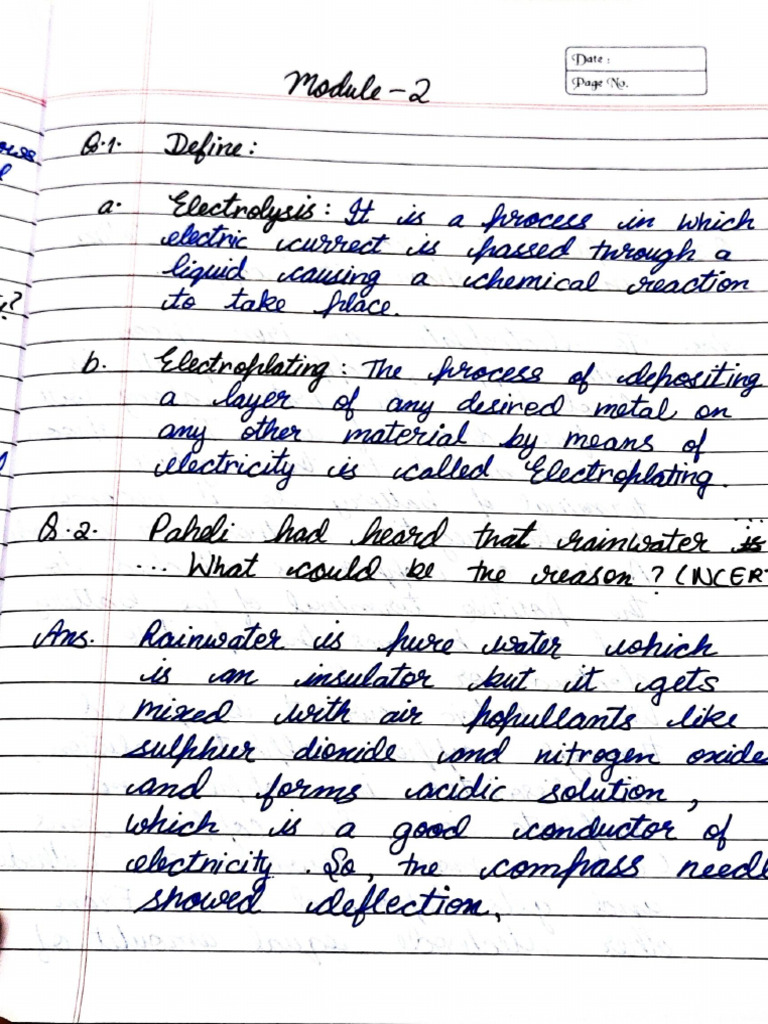 Date :
Page No.
Module - 2
Q.1. Define:
a. Electrolysis: It is a process in which
electric currect is passed through a
liquid causing a chemical reaction
to take place.
b. Electroplating: The process of depositing
a layer of any desired metal on
any other material by means of
electricity is called Electroplating.
Q.2. Paheli had heard that rainwater is
... What could be the reason? (NCERT
Ans. Rainwater is pure water which
is an insulator but it gets
mixed with air popullants like
sulphur dioxide and nitrogen oxide
and forms acidic solution,
which is a good conductor of
electricity. So, the compass needl
showed deflection.